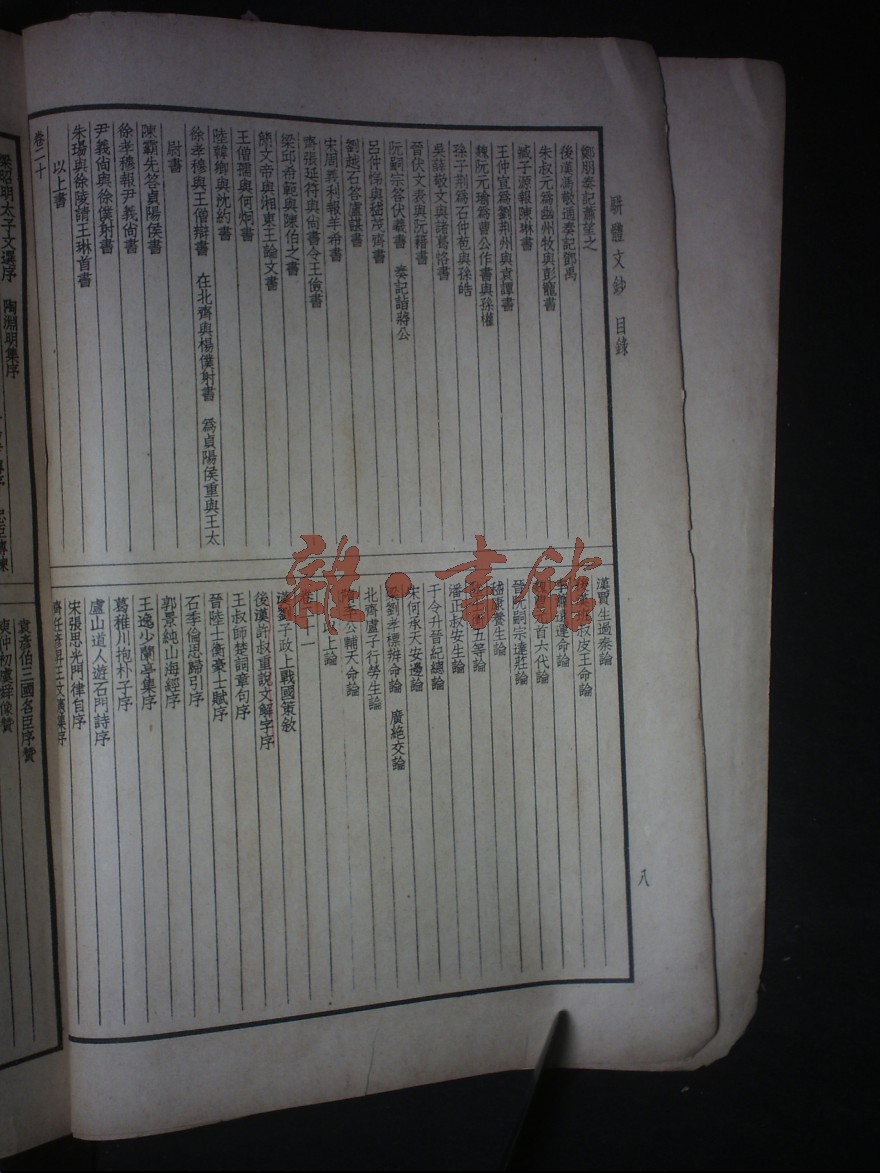 駢體文鈔　目錄
八
鄭朋奏記蕭望之
後漢馮敬通奏記鄧禹
朱叔元為幽州牧與彭寵書
臧子源報陳琳書
王仲宣為劉荊州與袁譚書
魏阮元瑜為曹公作書與孫權
孫子荊為石仲苞與孫皓
吳薛敬文與諸葛恪書
晉伏文表與阮籍書
阮嗣宗答伏羲書　奏記詣蔣公
呂仲悌與嵇茂齊書
劉越石答盧諶書
宋周義利報羊希書
齊張延符與尚書令王儉書
梁邱希範與陳伯之書
簡文帝與湘東王論文書
王僧孺與何炯書
陸韓卿與沈約書
徐孝穆與王僧辯書　在北齊與楊僕射書　為貞陽侯重與王太
尉書
陳霸先答貞陽侯書
徐孝穆報尹義尚書
尹義尚與徐僕射書
朱瑒與徐陵請王琳首書
以上書
卷二十
漢賈生過秦論
叔皮王命論
運命論
首六代論
晉阮嗣宗達莊論
嵇康養生論
五等論
潘正叔安生論
干令升晉紀總論
宋何承天安邊論
梁劉孝標辨命論　廣絕交論
北齊盧子行勞生論
隋李公輔天命論
上論
漢劉子政上戰國策敘
後漢許叔重說文解字序
王叔師楚詞章句序
晉陸士衡豪士賦序
石季倫思歸引序
郭景純山海經序
王逸少蘭亭集序
葛稚川抱朴子序
廬山道人遊石門詩序
宋張思光門律自序
齊任彥昇王文憲集序
梁昭明太子文選序　陶淵明集序
袁彥伯三國名臣序贊